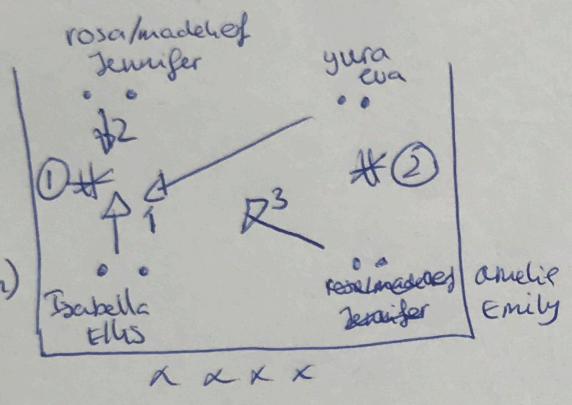 rosa/madelief
Jennifer
yura
eva
2
1
2
1
3
Isabella
Ellis
rosa/madelief
Jennifer
amelie
Emily
x x x x